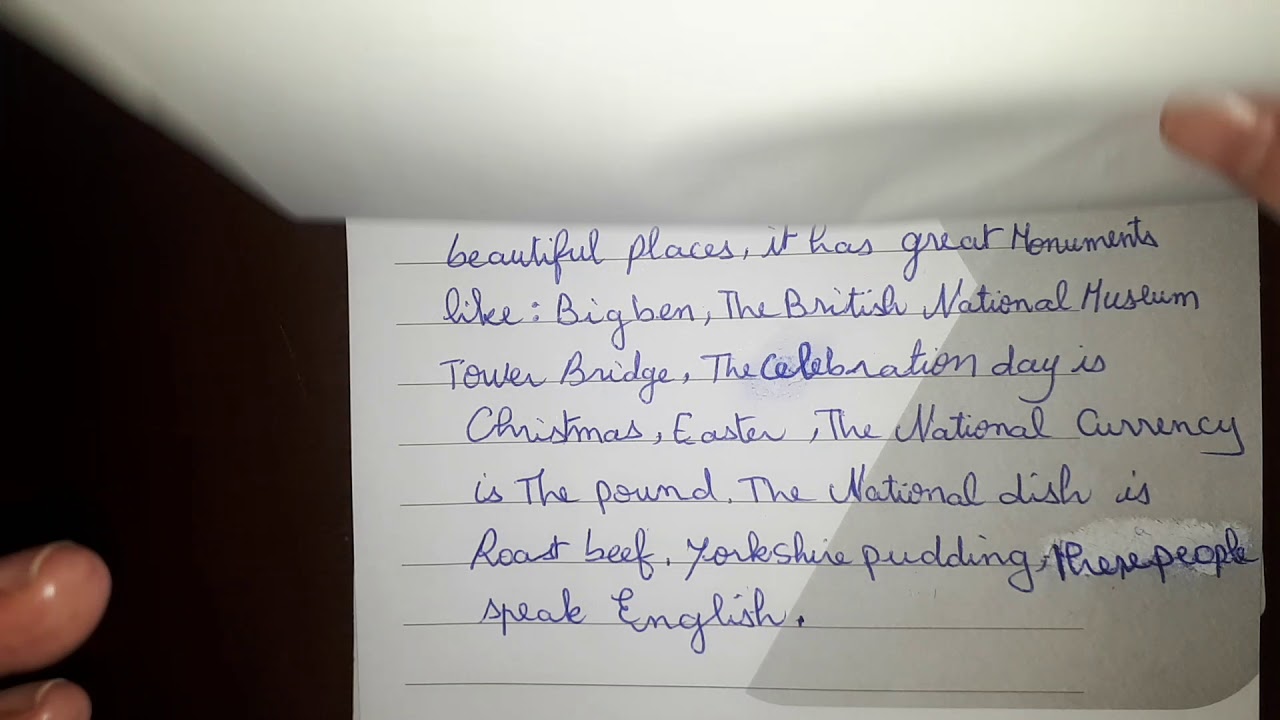 beautiful places, it has great Monuments
like: Big ben, The British National Museum
Tower Bridge, The Celebration day is
Christmas, Easter, The National Currency
is The pound. The National dish is
Roast beef, Yorkshire pudding, these people
speak English.